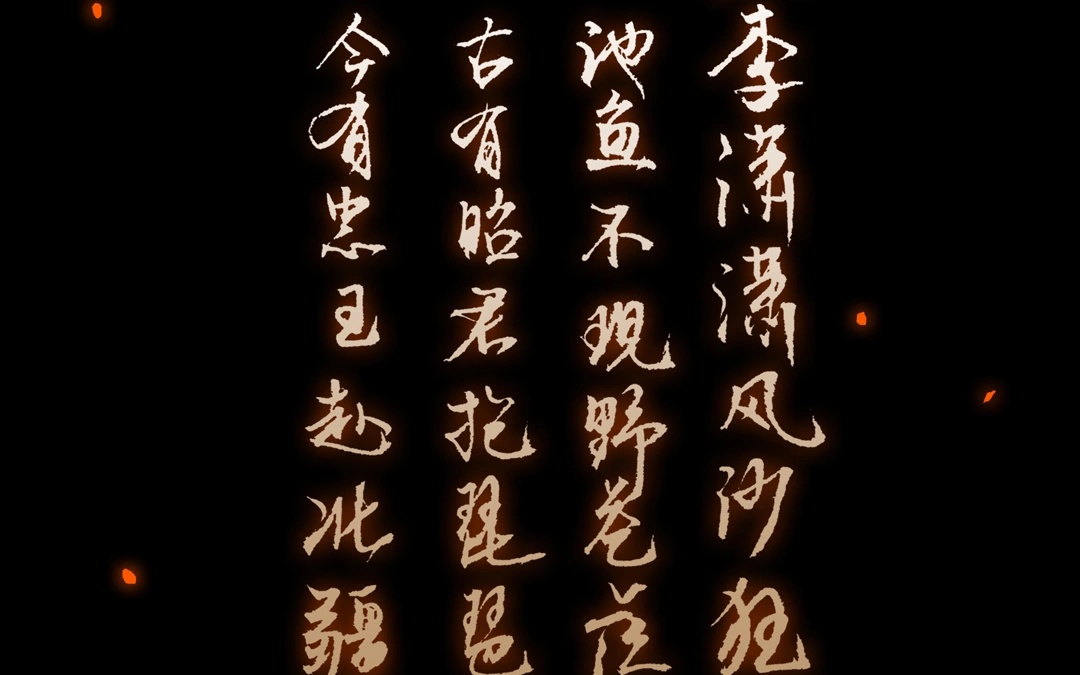 李潇潇风沙狂
池鱼不现野苍茫
古有昭君抱琵琶
今有忠臣赴北疆